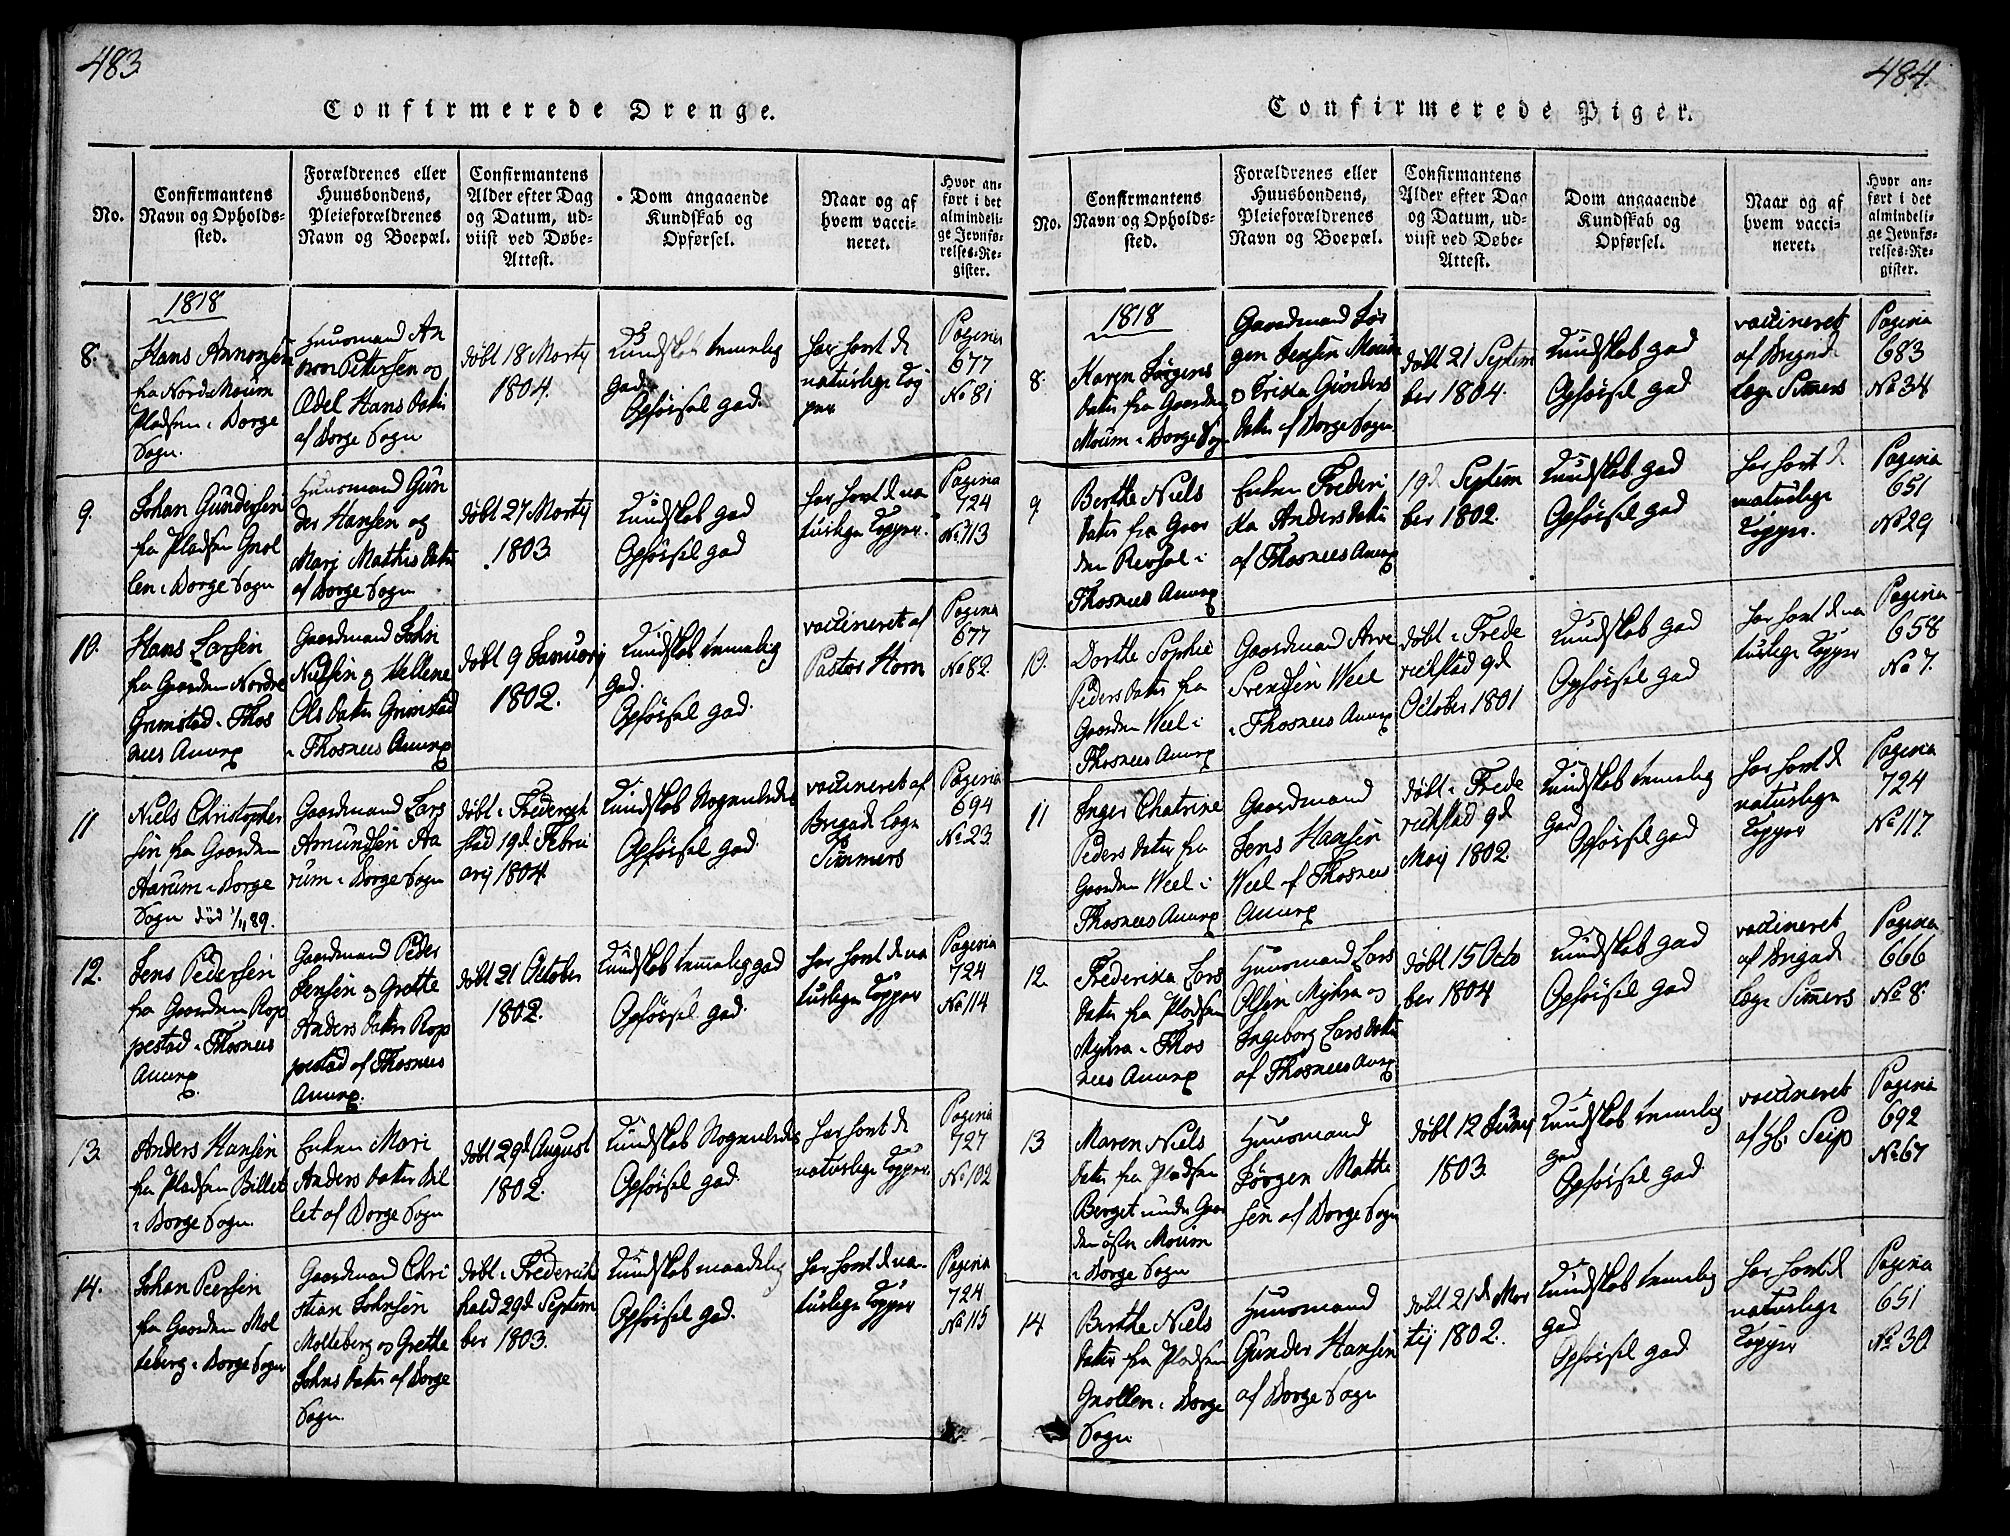 483
Confirmerede Drenge.
No.
Confirmantens
Navn og Opholds-
sted.
Forældrenes eller
Huusbondens,
Pleieforældrenes
Navn og Boepæl.
Confirmantens
Alder efter Dag
og Datum, ud-
viist ved Døbe-
Attest.
Dom angaaende
Kundskab og
Opførsel.
Naar og af
hvem vacci-
neret.
Hvor an-
ført i det
almindeli-
ge Jevnfø-
relses-Re-
gister.
1818
8.
Hans Annonsen
fra Nordr Moum
Pladsen i Borge
Sogn.
Huusmand An
non Pettersen og
Edel Hans Datter
af Borge Sogn
døbt 18 Martij
1804.
Kundskab temelig
god
Opførsel god.
har havt de
naturlige Cop
per
Pagina
677
No 81
9.
Johan Gundersen
fra Pladsen Gnol
len i Borge Sogn
Huusmand Gun
der Hansen og
Mari Mathis Datter
af Borge Sogn
døbt 27 Martij
1803
Kundskab god
Opførsel god
har havt de na
turlige Copper.
Pagina
724
No 113
10.
Hans Larsen
fra Gaarden Nordre
Grimstad i Thos
nees Annex
Gaardmand John
Nielsen og Hellene
Ols Datter Grimstad
i Thosnees Annex
døbt 9 Januarij
1802.
Kundskab temelig
god.
Opførsel god.
vaccineret af
Pastor Horn
Pagina
677
No 82.
11
Niels Christopher
sen fra Gaarden
Aarum i Borge
Sogn død 1/11 89.
Gaardmand Lars
Amundsen Aa
rum i Borge Sogn
døbt i Friderich
stad 19d Febru
arij 1804.
Kundskab Nogenledes
Opførsel god.
vaccineret af
Brigade Læge
Simmers
Pagina
694
No 23.
12.
Jens Pedersen
fra Gaarden Rop
pestad i Thosnees
Annex.
Gaardmand Peder
Jensen og Grette
Anders Datter Rop
pestad af Thosnees
Annex.
døbt 21 October
1802.
Kundskab temmelig god
Opførsel god.
har havt de na
turlige Copper
Pagina
724
No 114
13.
Anders Hansen
fra Pladsen Billet
i Borge Sogn.
Enken Mari
Anders Datter Bil
let af Borge Sogn
døbt 29d August
1802.
Kundskab Nogenledes
Opførsel god.
har havt de
naturlige Copper.
Pagina
727
No 102
14.
Johan Peersen
fra Gaarden Mol
teberg i Borge Sogn
Gaardmand Chri
stian Johnsen
Molteberg og Grethe
Johns Datter af Borge
Sogn.
døbt i Frederich
hald 29d Septem
ber 1803.
Kundskab maadelig
Opførsel god.
har havt de na-
turlige Copper
Pagina
724
No 115
484.
Confirmerede Piger.
No.
Confirmantens
Navn og Opholds-
sted.
Forældrenes eller
Huusbondens,
Pleieforældrenes
Navn og Boepæl.
Confirmantens
Alder efter Dag
og Datum, ud-
viist ved Døbe-
Attest.
Dom angaaende
Kundskab og
Opførsel.
Naar og af
hvem vacci-
neret.
Hvor an-
ført i det
almindeli-
ge Jevnfø-
relses-Re-
gister.
1818
8.
Karen Jørgens
Datter fra Gaarden
Moum i Borge Sogn
Gaardmand Jør
gen Jensen Moum
og Trixa Gunders
Datter af Borge Sogn
døbt 21 Septem
ber 1804.
Kundskab god
Opførsel god
vaccineret
af Brigade
Læge Simers
Pagina
683
No 34
9
Berthe Niels
Datter fra Gaar
den Revhol i
Thosnees Annex
Enken Frederi
ka Anders Datter
af Thosnees Annex
19d Septem
ber 1802.
Kundskab god
Opførsel god
har havt de
naturlige
Copper.
Pagina
651
No 29
10.
Dorthe Sophie
Peders Datter fra
Gaarden Weel i
Thosnees Annex
Gaardmand Arve
Svendsen Weel
i Thosnees Annex
døbt i Frede
richstad 9d
October 1801
Kundskab god
Opførsel god
har havt de na
turlige Copper
Pagina
658
No 7.
11
Inger Chatrine
Peders Datter fra
Gaarden Weel i
Thosnees Annex
Gaardmand
Jens Hansen
Weel af Thosnees
Annex
døbt i Frede
richstad 9d
Maij 1802.
Kundskab temelig
god
Opførsel god
har havt de
naturlige
Copper
Pagina
724
No 117.
12.
Frederika Lars
Datter fra Pladsen
Myhra i Thos
nees Annex
Huusmand Lars
Olsen Myhra og
Ingeborg Lars Datter
af Thosnees Annex
døbt 15 Octo
ber 1804
Kundskab god
Opførsel god
vaccineret
af Brigade
Læge Simers
Pagina
666
No 8.
13
Maren Niels
Datter fra Pladsen
Berget under Gaar
den øster Moum
i Borge Sogn
Huusmand
Jørgen Matthi
sen af Borge Sogn
døbt 12 Junij
1803.
Kundskab temelig
god
Opførsel god.
vaccineret
af Hr. Seip
Pagina
692
No 67
14
Berthe Niels
Datter fra Pladsen
Gnollen i Borge
Sogn
Huusmand
Gunder Hansen
af Borge Sogn
døbt 21d Mar
tij 1802.
Kundskab temelig
god
Opførsel god.
har havt de
naturlige
Copper
Pagina
651
No 30.